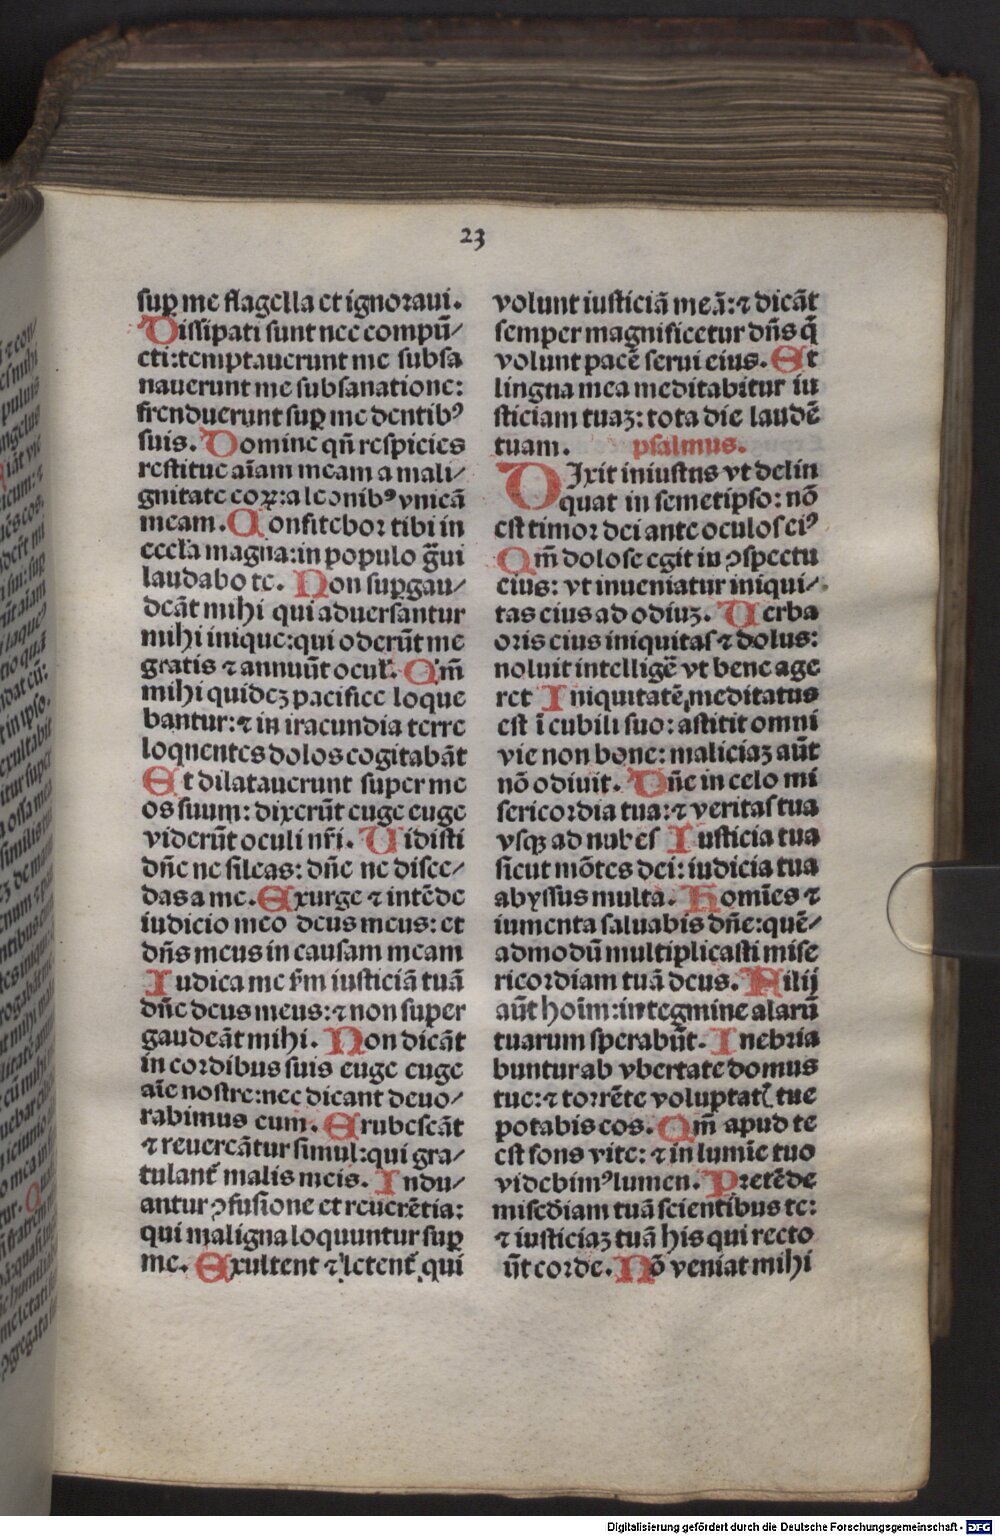 23
suꝑ me flagella et ignoraui.
Dissipati sunt nec compū/
cti:temptauerunt me subsa
nauerunt me subsanatione:
frenduerunt suꝑ me dentibꝰ
suis. Domine qn̄ respicies
restitue aīam meam a mali/
gnitate eoꝝ:a leonibꝰ vnicā
meam. Confitebor tibi in
eccl'a magna:in populo g̃ui
laudabo te. Non suꝑgau/
deāt mihi qui aduersantur
mihi inique:qui oderūt me
gratis ⁊ annuūt ocul'. Qm̄
mihi quideꝫ pacifice loque
bantur:⁊ in iracundia terre
loqnentes dolos cogitabāt
Et dilatauerunt super me
os suum: dixerūt euge euge
viderūt oculi nr̄i. Uidisti
dn̄e ne sileas: dn̄e ne disce/
das a me. Exurge ⁊ intēde
iudicio meo deus meus: et
dn̄s meus in causam meam
Iudica me ſm̄ iusticiā tuā
dn̄e deus meus:⁊ non super
gaudeāt mihi. Non dicāt
in cordibus suis euge euge
aīe nostre:nec dicant deuo/
rabimus eum. Erubescāt
⁊ reuereātur simul:qui gra/
tulant᷑ malis meis. Indu/
antur ꝯfusione et reuerētia:
qui maligna loquuntur suꝑ
me. Exultent ⁊ letent᷑ qui
volunt iusticiā meā:⁊ dicāt
semper magnificetur dn̄s q̄
volunt pacē serui eius. Et
lingna mea meditabitur iu
sticiam tuaꝫ: tota die laudē
tuam. psalmus.
DIxit iniustns vt delin
quat in semetipso: nō
est timor dei ante oculos eiꝰ
Qm̄ dolose egit in ꝯspectu
eius: vt inueniatur iniqui/
tas eius ad odiuꝫ. Uerba
oris eius iniquitas ⁊ dolus:
noluit intelligē vt bene age
ret Iniquitatē meditatus
est ī cubili suo: astitit omni
vie non bone: maliciaꝫ aūt
nō odiuit. Dn̄e in celo mi
sericordia tua:⁊ veritas tua
vsqꝫ ad nubes Iusticia tua
sicut mōtes dei: iudicia tua
abyssus multa. Homīes ⁊
iumenta saluabis dn̄e:quē/
admodū multiplicasti mise
ricordiam tuā deus. Filij
aūt hoīm:in tegmine alarū
tuarum sperabūt. Inebria
buntur ab vbertate domus
tue:⁊ torrēte voluptatꝭ tue
potabis eos. Qm̄ apud te
est fons vite: ⁊ in lumīe tuo
videbimꝰ lumen. Pretēde
misediam tuā scientibus te:
⁊ iusticiaꝫ tuā his qui recto
ūt corde. Nō veniat mihi
Digitalisierung gefördert durch die Deutsche Forschungsgemeinschaft - DFG